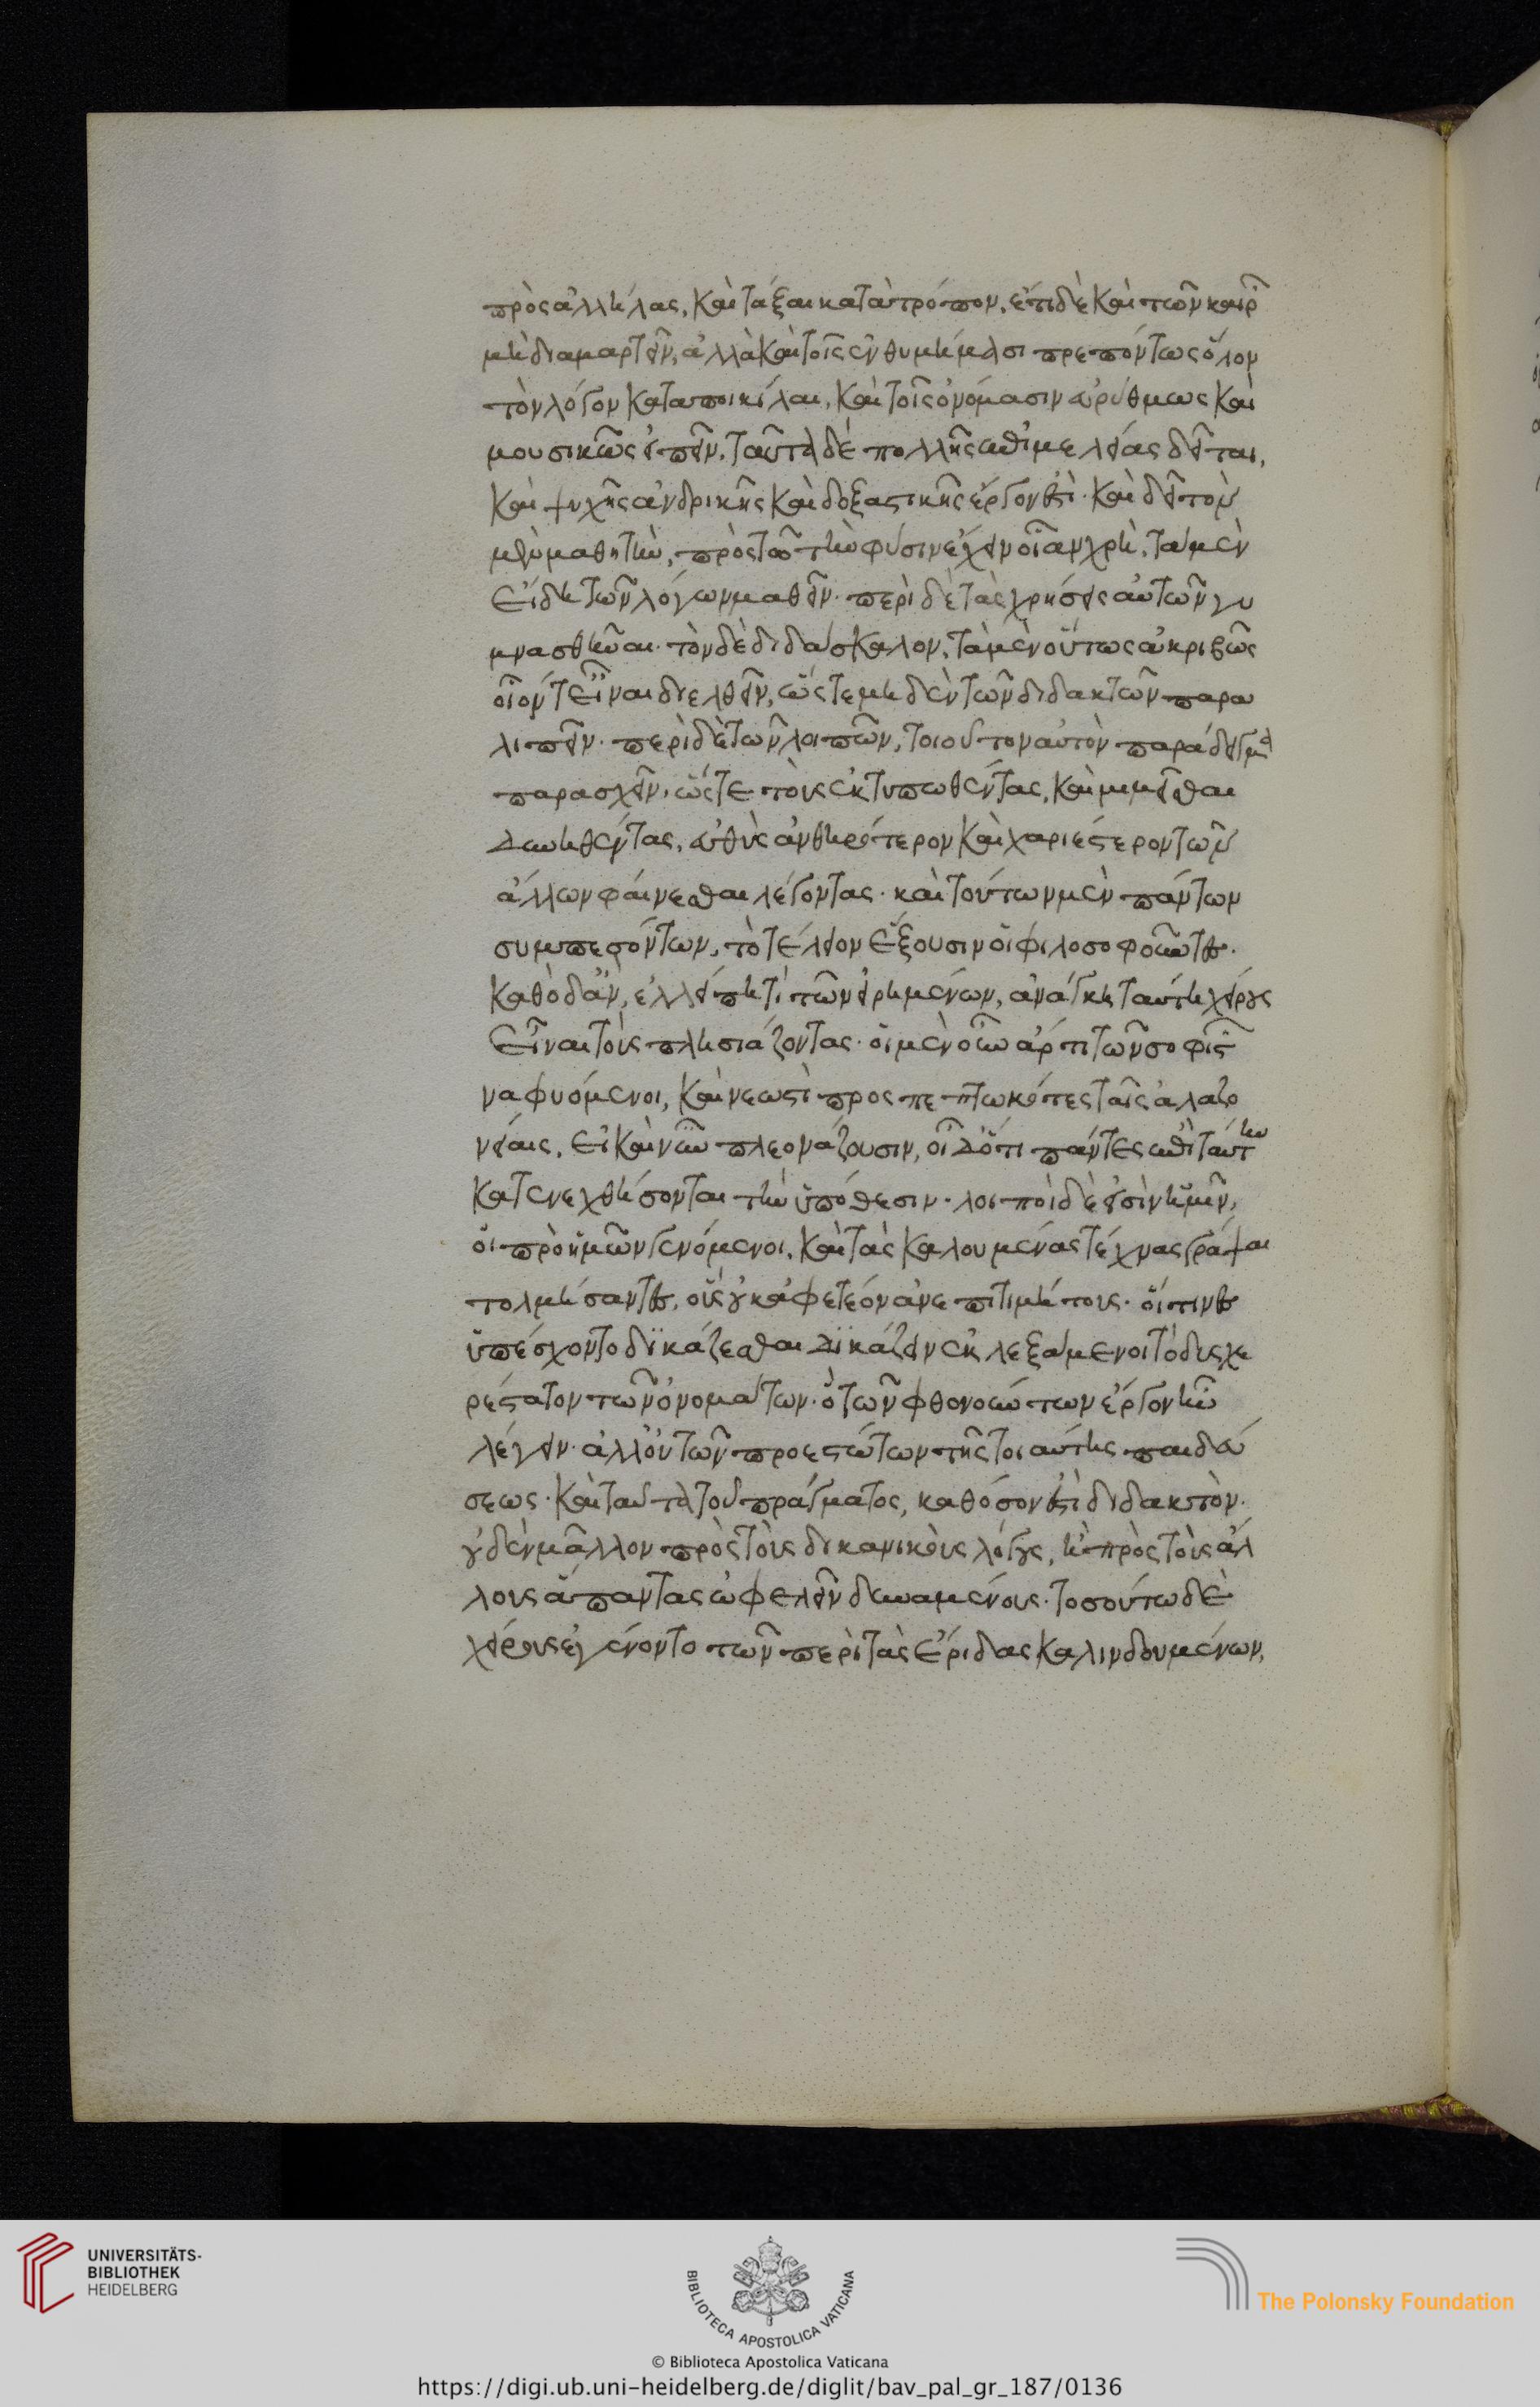 πρὸς ἀλλήλας, καὶ τάξαι κατὰ τρόπον, ἔτι δὲ καὶ τῶν καιρῶν
μὴ διαμαρτεῖν, ἀλλὰ καὶ τοῖς ἐνθυμήμασι πρεπόντως ὅλον
τὸν λόγον καταποικίλαι, καὶ τοῖς ὀνόμασιν εὐρύθμως καὶ
μουσικῶς εἰπεῖν, ταῦτα δὲ πολλῆς ἐπιμελείας δεῖται,
καὶ ψυχῆς ἀνδρικῆς καὶ δοξαστικῆς ἔργον ἐστὶ· καὶ δεῖ τὸν
μὲν μαθητὴν, πρὸς τῷ τὴν φύσιν ἔχειν οἵαν χρὴ, τὰ μὲν
εἴδη τῶν λόγων μαθεῖν· περὶ δὲ τὰς χρήσεις αὐτῶν γυ
μνασθῆναι· τὸν δὲ διδάσκαλον, τὰ μὲν οὕτως ἀκριβῶς
οἷόν τ' εἶναι διελθεῖν, ὥστε μηδὲν τῶν διδακτῶν παρα
λιπεῖν· περὶ δὲ τῶν λοιπῶν, τοιοῦτον αὐτὸν παράδειγμα
παρασχεῖν, ὥστε τοὺς ἐκτυπωθέντας, καὶ μιμεῖσθαι
δυνηθέντας, εὐθὺς ἀνθηρότερον καὶ χαριέστερον τῶν
ἄλλων φαίνεσθαι λέγοντας· καὶ τούτων μὲν πάντων
συμπεσόντων, τὸ τέλειον ἕξουσιν οἱ φιλοσοφοῦντες·
καθὸ δ' ἂν, ἐλλείπῃ τί τῶν εἰρημένων, ἀνάγκη ταύτῃ χείρους
εἶναι τοὺς πλησιάζοντας· οἱ μὲν οὖν ἄρτι τῶν σοφιστῶν
ναφυόμενοι, καὶ νεωστὶ προσπεπτωκότες ταῖς ἀλαζο
νείαις, εἰ καὶ νῦν πλεονάζουσιν, οἶδ' ὅτι πάντες ἐπὶ ταύτην
κατενεχθήσονται τὴν ὑπόθεσιν· λοιποὶ δὲ εἰσὶν ἡμῖν,
οἱ πρὸ ἡμῶν γενόμενοι, καὶ τὰς καλουμένας τέχνας γράψαι
τολμήσαντες, οὓς οὐκ ἀφετέον ἀνεπιτιμήτους· οἵτινες
ὑπέσχοντο δικάζεσθαι δικάζειν ἐκλεξάμενοι τὸ δυσχε
ρέστατον τῶν ὀνομάτων· ὃ τῶν φθονούντων ἔργον ἦν
λέγειν· ἀλλ' οὐ τῶν προεστώτων τῆς τοιαύτης παιδεύ
σεως· καὶ ταῦτα τοῦ πράγματος, καθόσον ἐστὶ διδακτὸν·
οὐδὲν μᾶλλον πρὸς τοὺς δικανικοὺς λόγους, ἢ πρὸς τοὺς ἄλ
λους ἅπαντας ὠφελεῖν δυναμένους· τοσούτω δὲ
χείρους ἐγένοντο τῶν περὶ τὰς ἔριδας καλινδουμένων,
UNIVERSITÄTS-
BIBLIOTHEK
HEIDELBERG
BIBLIOTECA APOSTOLICA VATICANA
The Polonsky Foundation
© Biblioteca Apostolica Vaticana
https://digi.ub.uni-heidelberg.de/diglit/bav_pal_gr_187/0136